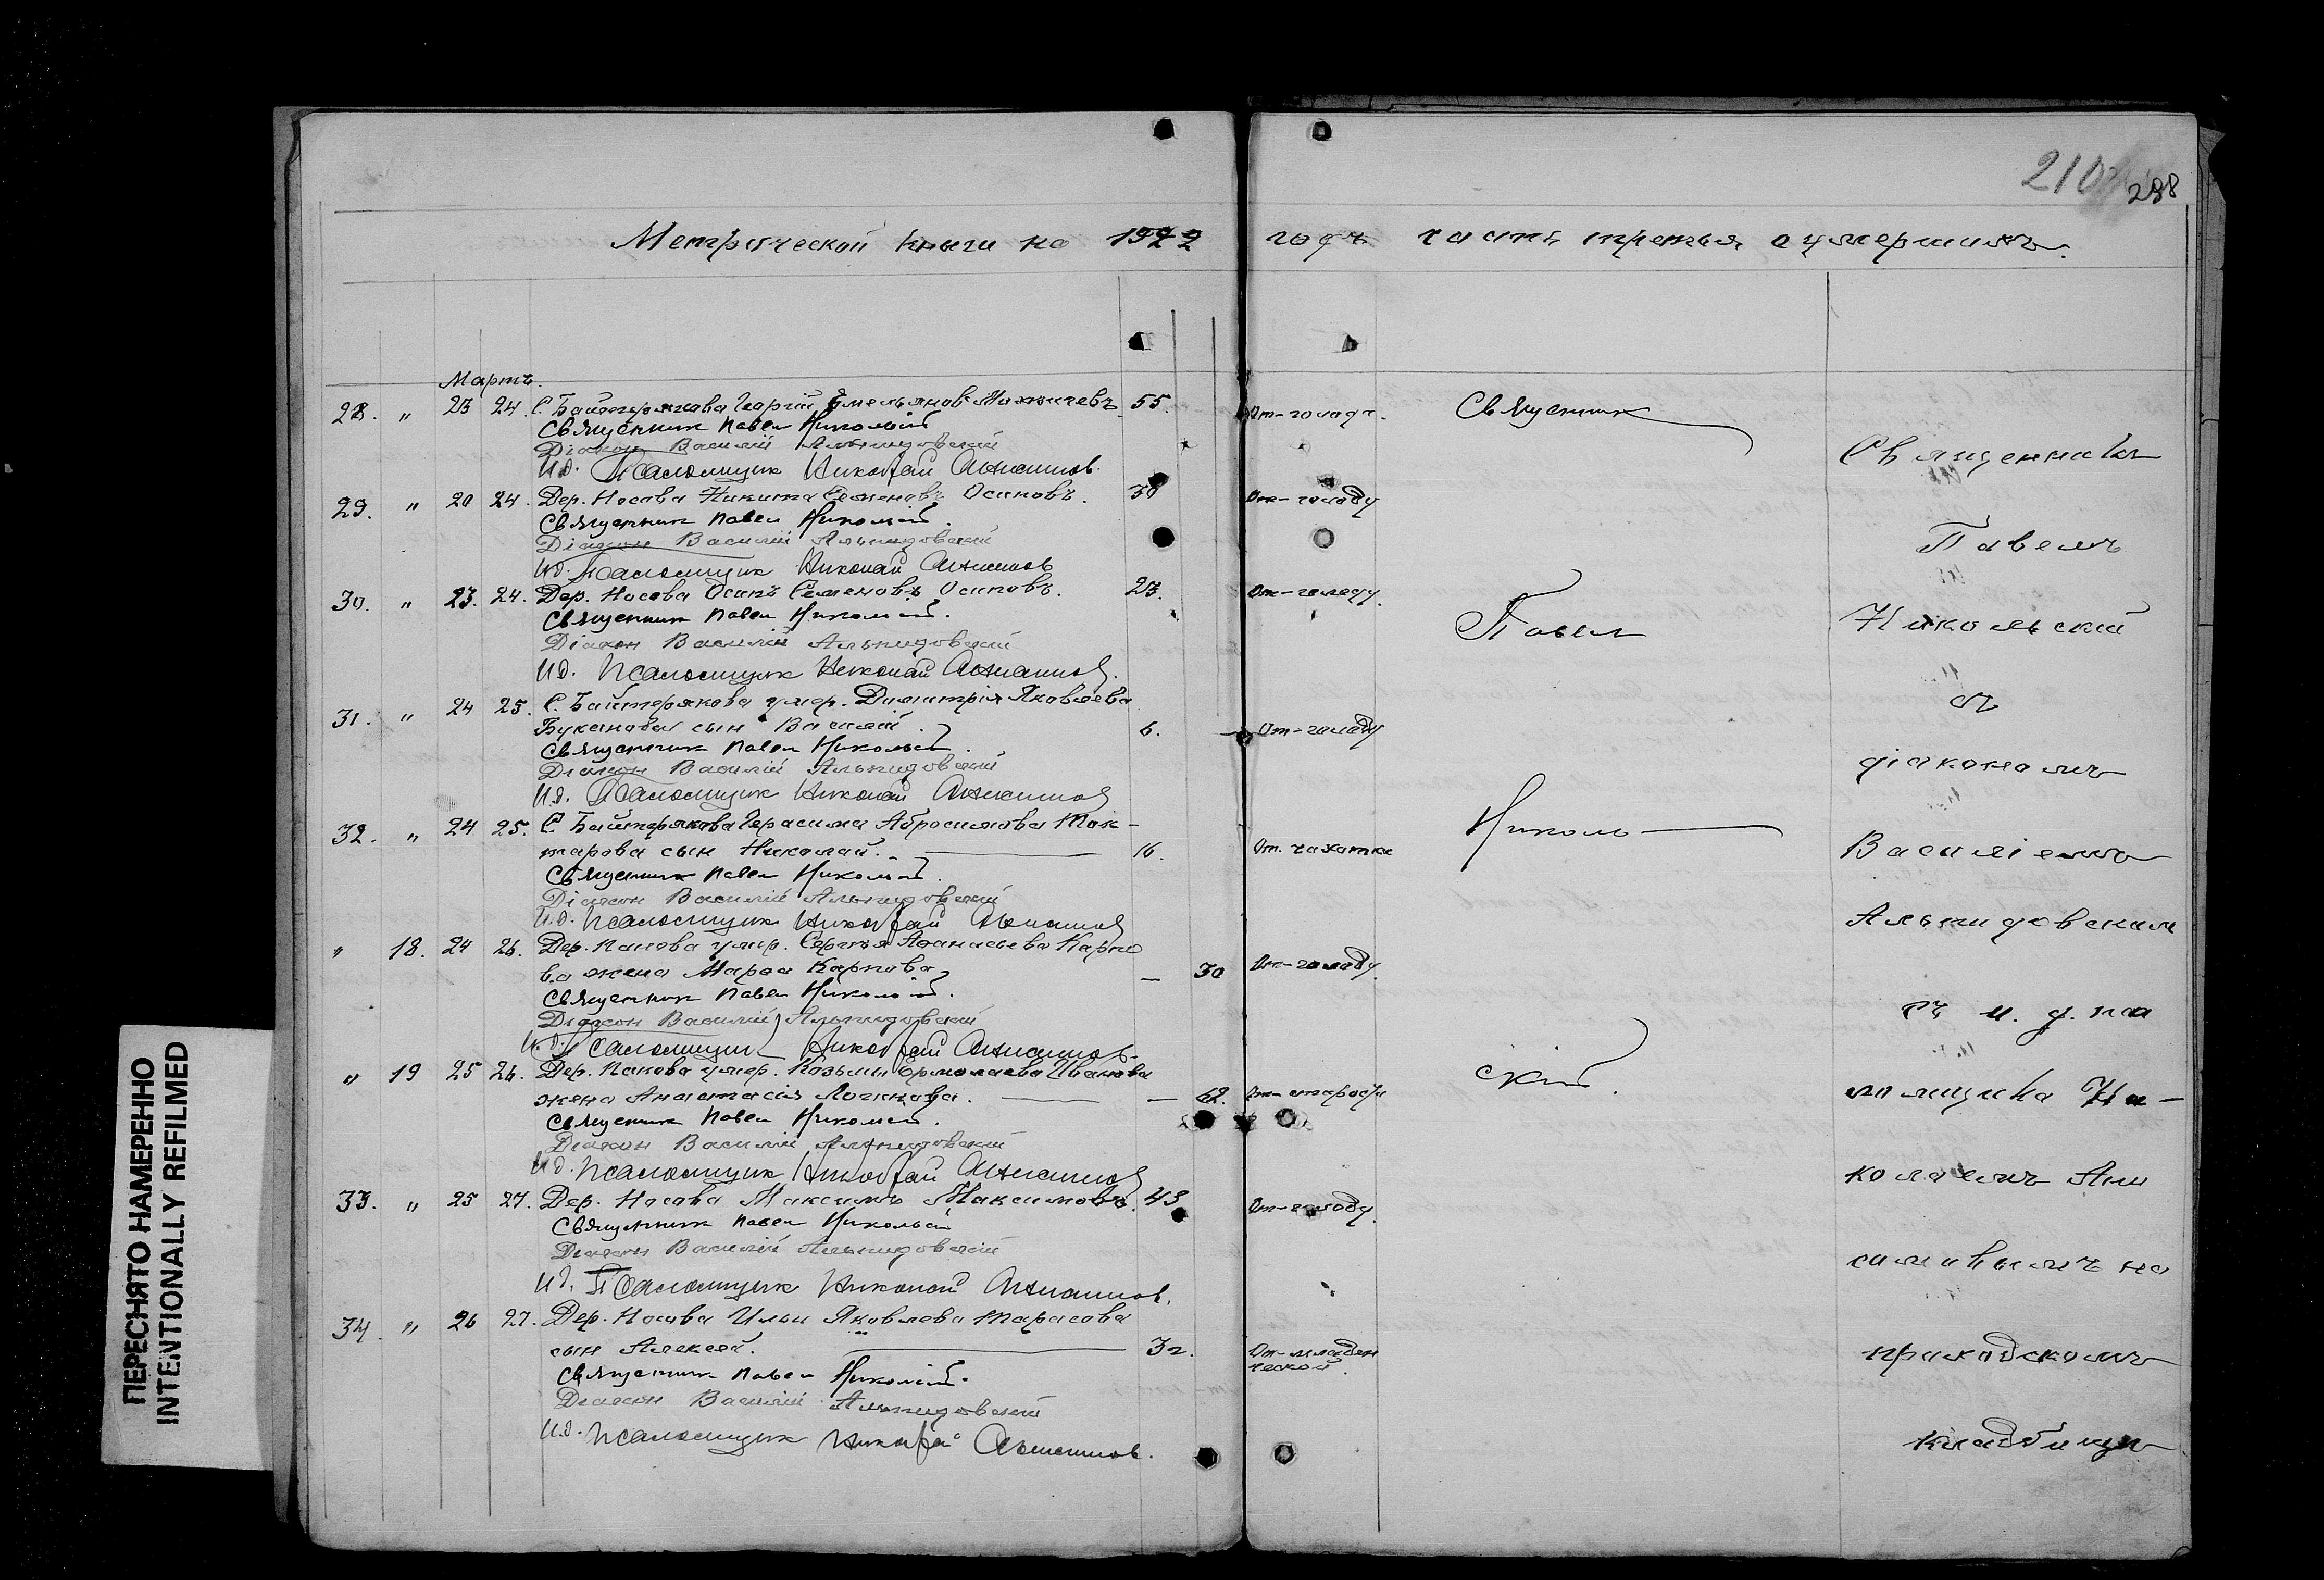 210 298
Метрической книги на 1922 годъ часть третья о умершихъ.
Мартъ.
28. " 23 24. С. Байтерякова Георгій Емельяновъ 55. От-голода.
Священник Павел Никольский
Діакон Василий Альпидовский
И.д. Псаломщик Николай Анисимов.
29. " 20 24. Дер. Носова Никита Семеновъ Осиповъ. 38 От-голоду
Священник Павел Никольский.
Діакон Василий Альпидовский
И.д. Псаломщик Николай Анисимов
30. " 23. 24. Дер. Носова Осипъ Семеновъ Осиповъ. 23. От-голоду.
Священник Павел Никольский.
Діакон Василий Альпидовский
И.д. Псаломщик Николай Анисимов.
31. " 24 25. С. Байтерякова умер. Димитрія Яковлева
сын Василий. 6. От-голоду
Священник Павел Никольский.
Діакон Василий Альпидовский
И.д. Псаломщик Николай Анисимов
32. " 24 25. С. Байтерякова Герасима Абросимова Ток-
марова сын Николай. 16. От. чахотки
Священник Павел Никольский.
Діакон Василий Альпидовский
И.д. Псаломщик Николай Анисимов
" 18. 24 26. Дер. Панова умер. Сергѣя Афанасьева Карпо
ва жена Марфа Карпова — 30 От-голоду.
Священник Павел Никольский.
Діакон Василий Альпидовский
И.д. Псаломщик Николай Анисимов.
" 19 25 26. Дер. Панова умер. Козьмы Ермолаева Иванова
жена Анастасія Логинова. — 62. От-старости
Священник Павел Никольский.
Діакон Василий Альпидовский
И.д. Псаломщик Николай Анисимов
33. " 25 27. Дер. Носова Максимъ Максимовъ. 43 От-голоду.
Священник Павел Никольский
Діакон Василий Альпидовский
И.д. Псаломщик Николай Анисимов.
34. " 26 27. Дер. Носова Ильи Яковлева Тарасова
сын Алексѣй. От-младен
ческой.
Священник Павел Никольский.
Діакон Василий Альпидовский
И.д. Псаломщик Николай Анисимов.
Священник
Павел
Николь
ский.
Священникъ
Павелъ
Никольский
съ
діакономъ
Василіемъ
Альпидовским
съ и. д. пса
ломщика Ни-
колаемъ Ани
симовымъ на
приходскомъ
кладбищѣ
ПЕРЕСНЯТО НАМЕРЕННО
INTENTIONALLY REFILMED